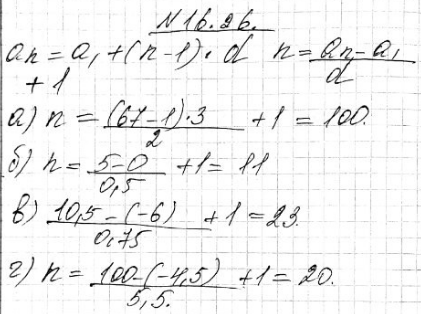 N 16.26.
an = a1 + (n-1)· d n = an - a1 / d
+ 1
а) n = (67-1)·3 / 2 + 1 = 100.
б) n = 5-0 / 0,5 + 1 = 11
в) 10,5 - (-6) / 0,75 + 1 = 23.
г) n = 100-(-4,5) / 5,5. + 1 = 20.